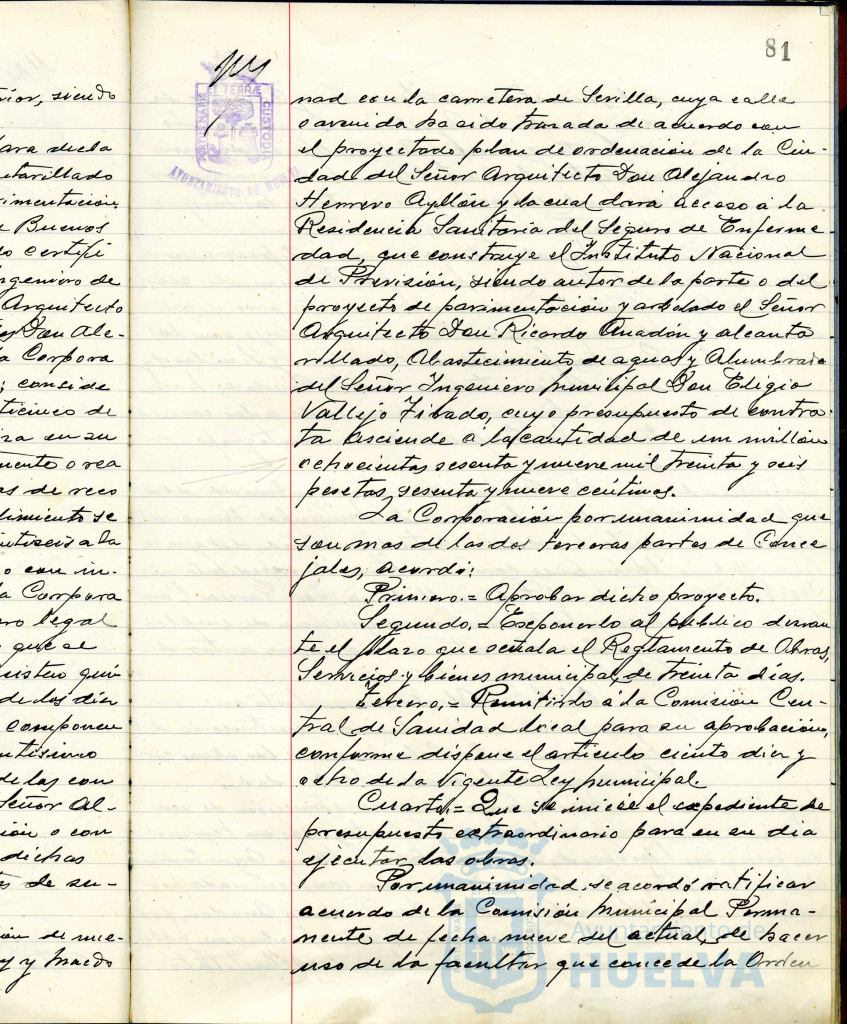 81
rior, siendo
ara de la
cantarillado
vimentación
e Buenos
do certifi
ngeniero de
Arquitecto
Don Ale-
a Corpora
; conside
ticinco de
iza en su
mente o rea
as de reco
dimiento se
intiseis a la
o con in-
la Corpora
ro legal
que se
nistro quin
de los dias
componen
ntisimo
de las con
Señor Al-
ión o con
dichas
de su-
ión de nue-
y y macdo
PORTUS MARIS
ET TERRÆ
CUSTODIA
AYUNTAMIENTO DE HUELVA
nad con la carretera de Sevilla, cuya calle
o avenida ha sido trazada de acuerdo con
el proyectado plan de ordenación de la Ciu-
dad del Señor Arquitecto Don Alejandro
Herrero Ayllón y la cual dará acceso á la
Residencia Sanitaria del Seguro de Enferme-
dad, que construye el Instituto Nacional
de Previsión, siendo autor de la parte o del
proyecto de pavimentación y arbolado el Señor
Arquitecto Don Ricardo Anadón y alcanta
rillado, Abastecimiento de aguas y Alumbrado
del Señor Ingeniero municipal Don Eligio
Vallejo Tirado, cuyo presupuesto de contra-
ta asciende á la cantidad de un millón
ochocientas sesenta y nueve mil treinta y seis
pesetas, sesenta y nueve céntimos.
La Corporación por unanimidad que
son mas de las dos terceras partes de Conce
jales, acordó:
Primero.= Aprobar dicho proyecto.
Segundo.= Exponerlo al público duran
te el plazo que señala el Reglamento de Obras,
Servicios y bienes municipal, de treinta dias.
Tercero.= Remitirlo á la Comisión Cen-
tral de Sanidad local para su aprobación,
conforme dispone el articulo ciento diez y
ocho de la Vigente Ley municipal.
Cuarto.= Que se inicie el expediente de
presupuesto extraordinario para en su dia
ejecutar las obras.
Por unanimidad se acordó ratificar
acuerdo de la Comisión Municipal Perma-
nente de fecha nueve del actual, de hacer
uso de la facultad que concede la Orden
Ayuntamiento de
HUELVA